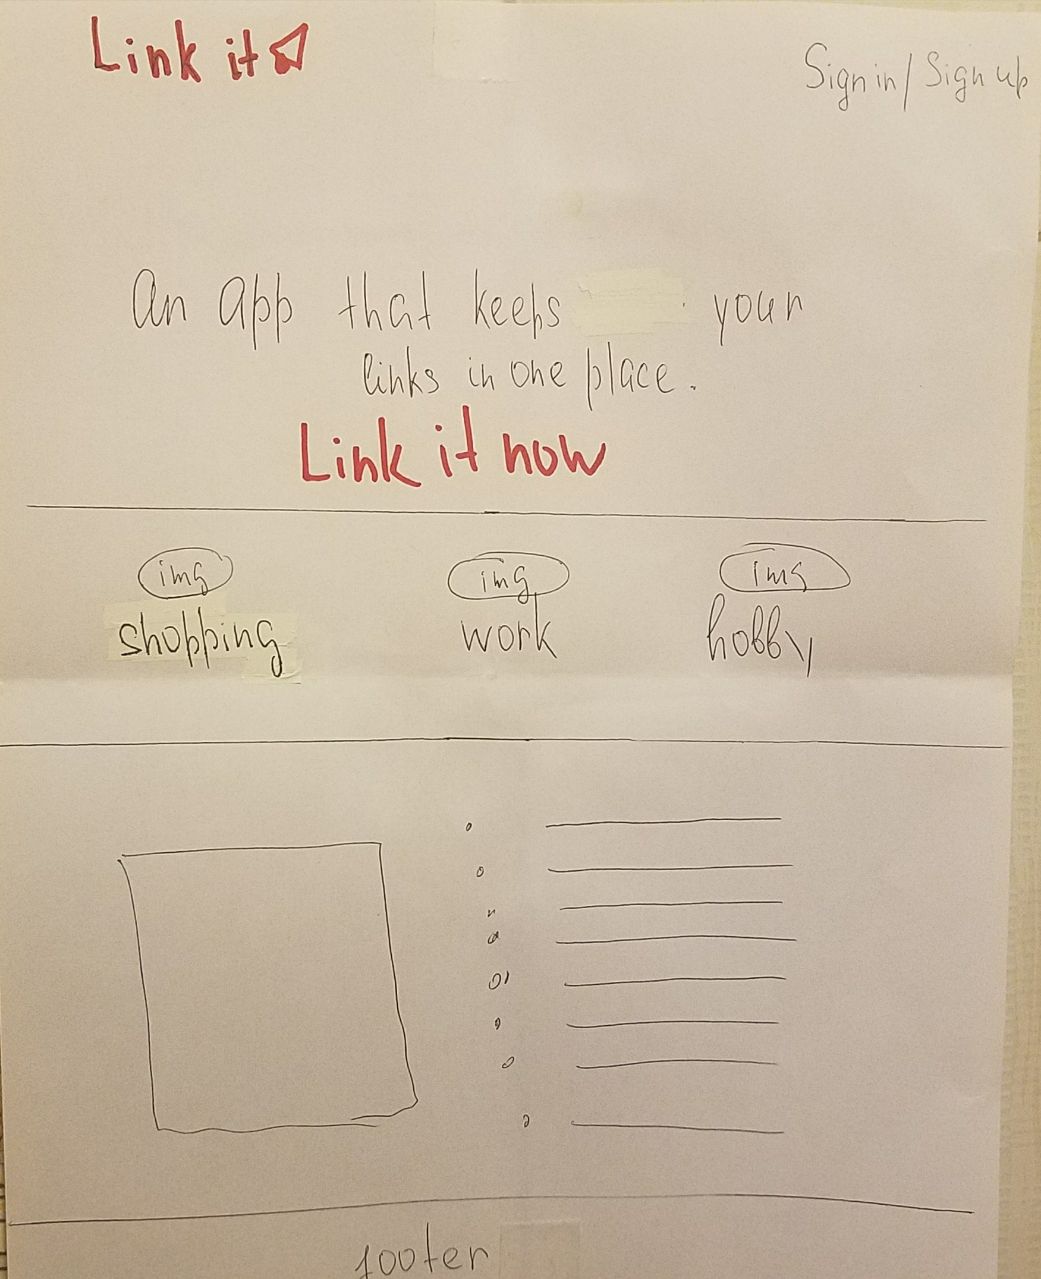 Link it
Sign in / Sign up
An app that keeps your
links in one place.
Link it now
img
img
img
shopping
work
hobby
footer